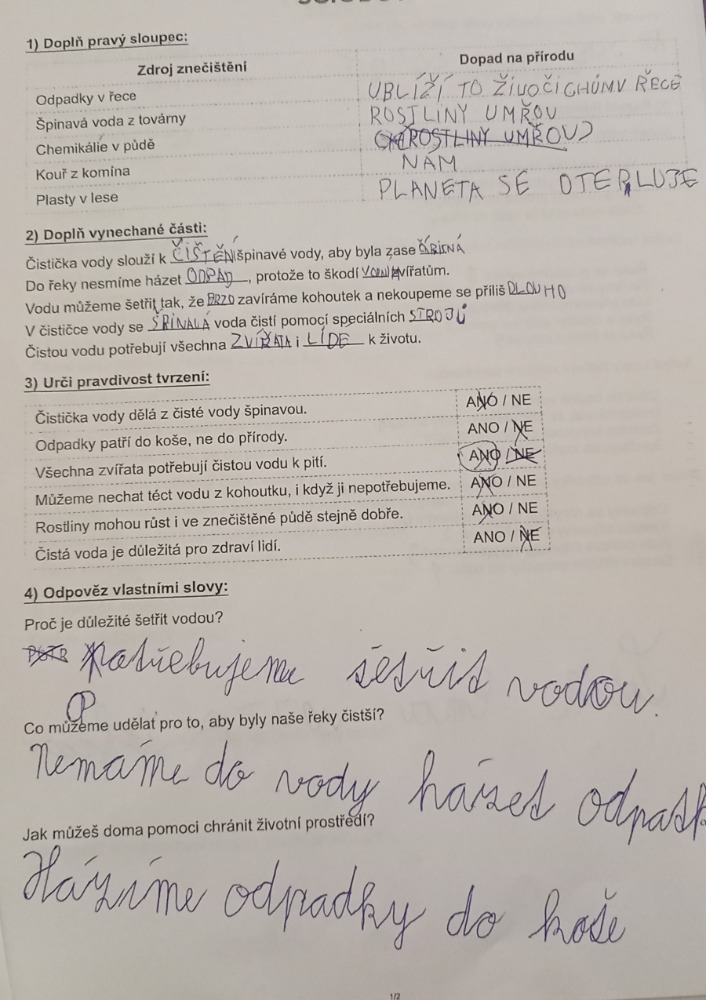 1) Doplň pravý sloupec:
Zdroj znečištění Dopad na přírodu
Odpadky v řece UBLÍŽÍ TO ŽIVOČICHŮMV ŘECE
Špinavá voda z továrny ROSTLINY UMŘOU
Chemikálie v půdě (ROSTLINY UMŘOU)
Kouř z komína NÁM
Plasty v lese PLANETA SE OTEPLUJE
2) Doplň vynechané části:
Čistička vody slouží k ČIŠTĚNÍ špinavé vody, aby byla zase
Do řeky nesmíme házet ODPAD, protože to škodí zvířatům.
Vodu můžeme šetřit tak, že BRZO zavíráme kohoutek a nekoupeme se příliš DLOUHO
V čističce vody se ŠPINALÁ voda čistí pomocí speciálních STROJŮ
Čistou vodu potřebují všechna ZVÍŘATA i LIDÉ k životu.
3) Urči pravdivost tvrzení:
Čistička vody dělá z čisté vody špinavou. ANO / NE
Odpadky patří do koše, ne do přírody. ANO / NE
Všechna zvířata potřebují čistou vodu k pití. ANO / NE
Můžeme nechat téct vodu z kohoutku, i když ji nepotřebujeme. ANO / NE
Rostliny mohou růst i ve znečištěné půdě stejně dobře. ANO / NE
Čistá voda je důležitá pro zdraví lidí. ANO / NE
4) Odpověz vlastními slovy:
Proč je důležité šetřit vodou?
Potřebujeme šetřit vodou.
P
Co můžeme udělat pro to, aby byly naše řeky čistší?
Nemáme do vody házet odpadk
Jak můžeš doma pomoci chránit životní prostředí?
Házíme odpadky do koše
1/2